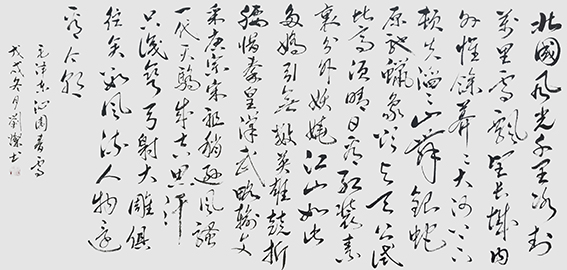 北國風光千里冰封
萬里雪飄望長城内
外惟餘莽〻大河上下
頓失滔〻山舞銀蛇
原馳蠟象欲与天公試
比高須晴日看紅裝素
裹分外妖嬈江山如此
多嬌引無數英雄競折
腰惜秦皇漢武略輸文
采唐宗宋祖稍遜風騷
一代天驕成吉思汗
只識彎弓射大雕俱
往矣數風流人物還
看今朝
毛澤東沁園春雪
戊戌冬月劉書